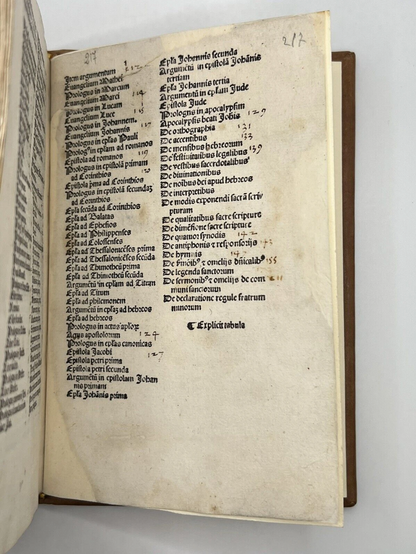 217
217
Item argumentum 112
Evangelium Mathei
Prologus in Marcum
Evangelium Marci
Prologus in Lucam
Evangelium Luce
Prologus in Johannem
Evangelium Johannis
Prologus in epl̃as Pauli
Prologus in eplam ad romanos
Epistola ad romanos
Prologus in epistolã primam
ad Corinthios
Epistola pma ad Corinthios
Prologus in epistolã secundã
ad Corinthios
Epl̃a secũda ad Corinthios
Epl̃a ad Galatas
Epl̃a ad Ephesios
Epl̃a ad Philippenses
Epl̃a ad Colossenses
Epl̃a ad Thessalonicẽses prima
Epl̃a ad Thessalonicẽses scd̃a
Epl̃a ad Thimotheũ prima
Epl̃a ad Thimotheũ secũda
Argumẽtũ in epl̃am ad Titum
Epl̃a ad Titum
Epl̃a ad philemonem
Argumẽtũ in epl̃aʒ ad hebreos
Epl̃a ad hebreos
Prologus in actus apl̃oꝝ
Actus apostolorum 124
Prologus in epl̃as canonicas
Epistola Jacobi 127
Epistola petri prima
Epistola petri secunda
Argumẽtũ in epistolam Johan
nis primam
Epl̃a Johãnis prima
Epl̃a Johannis secunda
Argumẽtũ in epistolã Johãnis
tertiam
Epl̃a Johannis tertia
Argumẽtũ in epl̃am Jude
Epistola Jude
Prologus in apocalypsim
Apocalypsis beati Johis 129
De orthographia 131
De accentibus 133
De mensibus hebreorum
De festiuitatibus legalibus 139
De vestibus sacerdotalibus
De diuinationibus
De noĩbus dei apud hebreos
De interpretibus
De modis exponendi sacrã scri
pturam
De qualitatibus sacre scripture
De dimẽsione sacre scripture
De quatuor synodis 142
De antiphonis et responsorijs
De hymnis
De legenda sanctorum
De sermonibꝰ et omelijs de com
muni sanctorum
De declaratione regule fratrum
minorum
¶ Explicit tabula